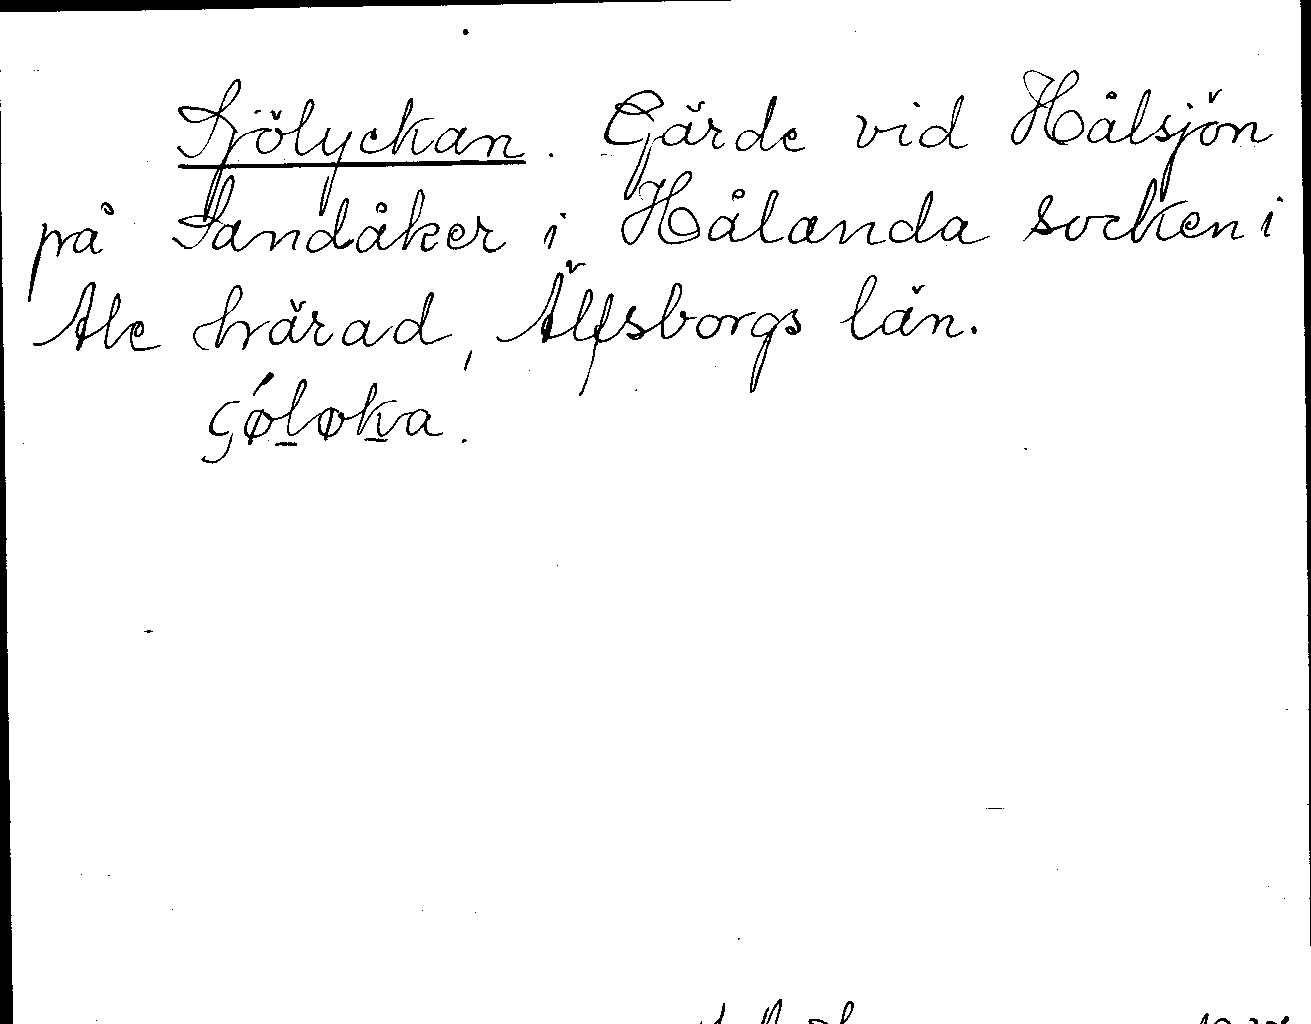 Sjölyckan. Gärde vid Hålsjön
på Sandåker i Hålanda socken i
Ale härad, Älfsborgs län.
çǿl̠øk̠a.